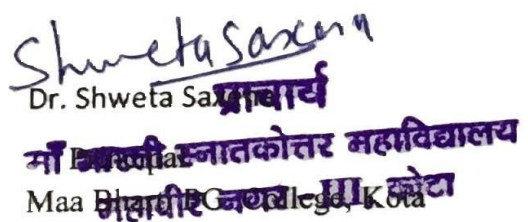 Shweta Saxena
Dr. Shweta Saxena
प्राचार्य
Principal
माँ भारती स्नातकोत्तर महाविद्यालय
Maa Bharti PG College, Kota
महावीर नगर - III, कोटा